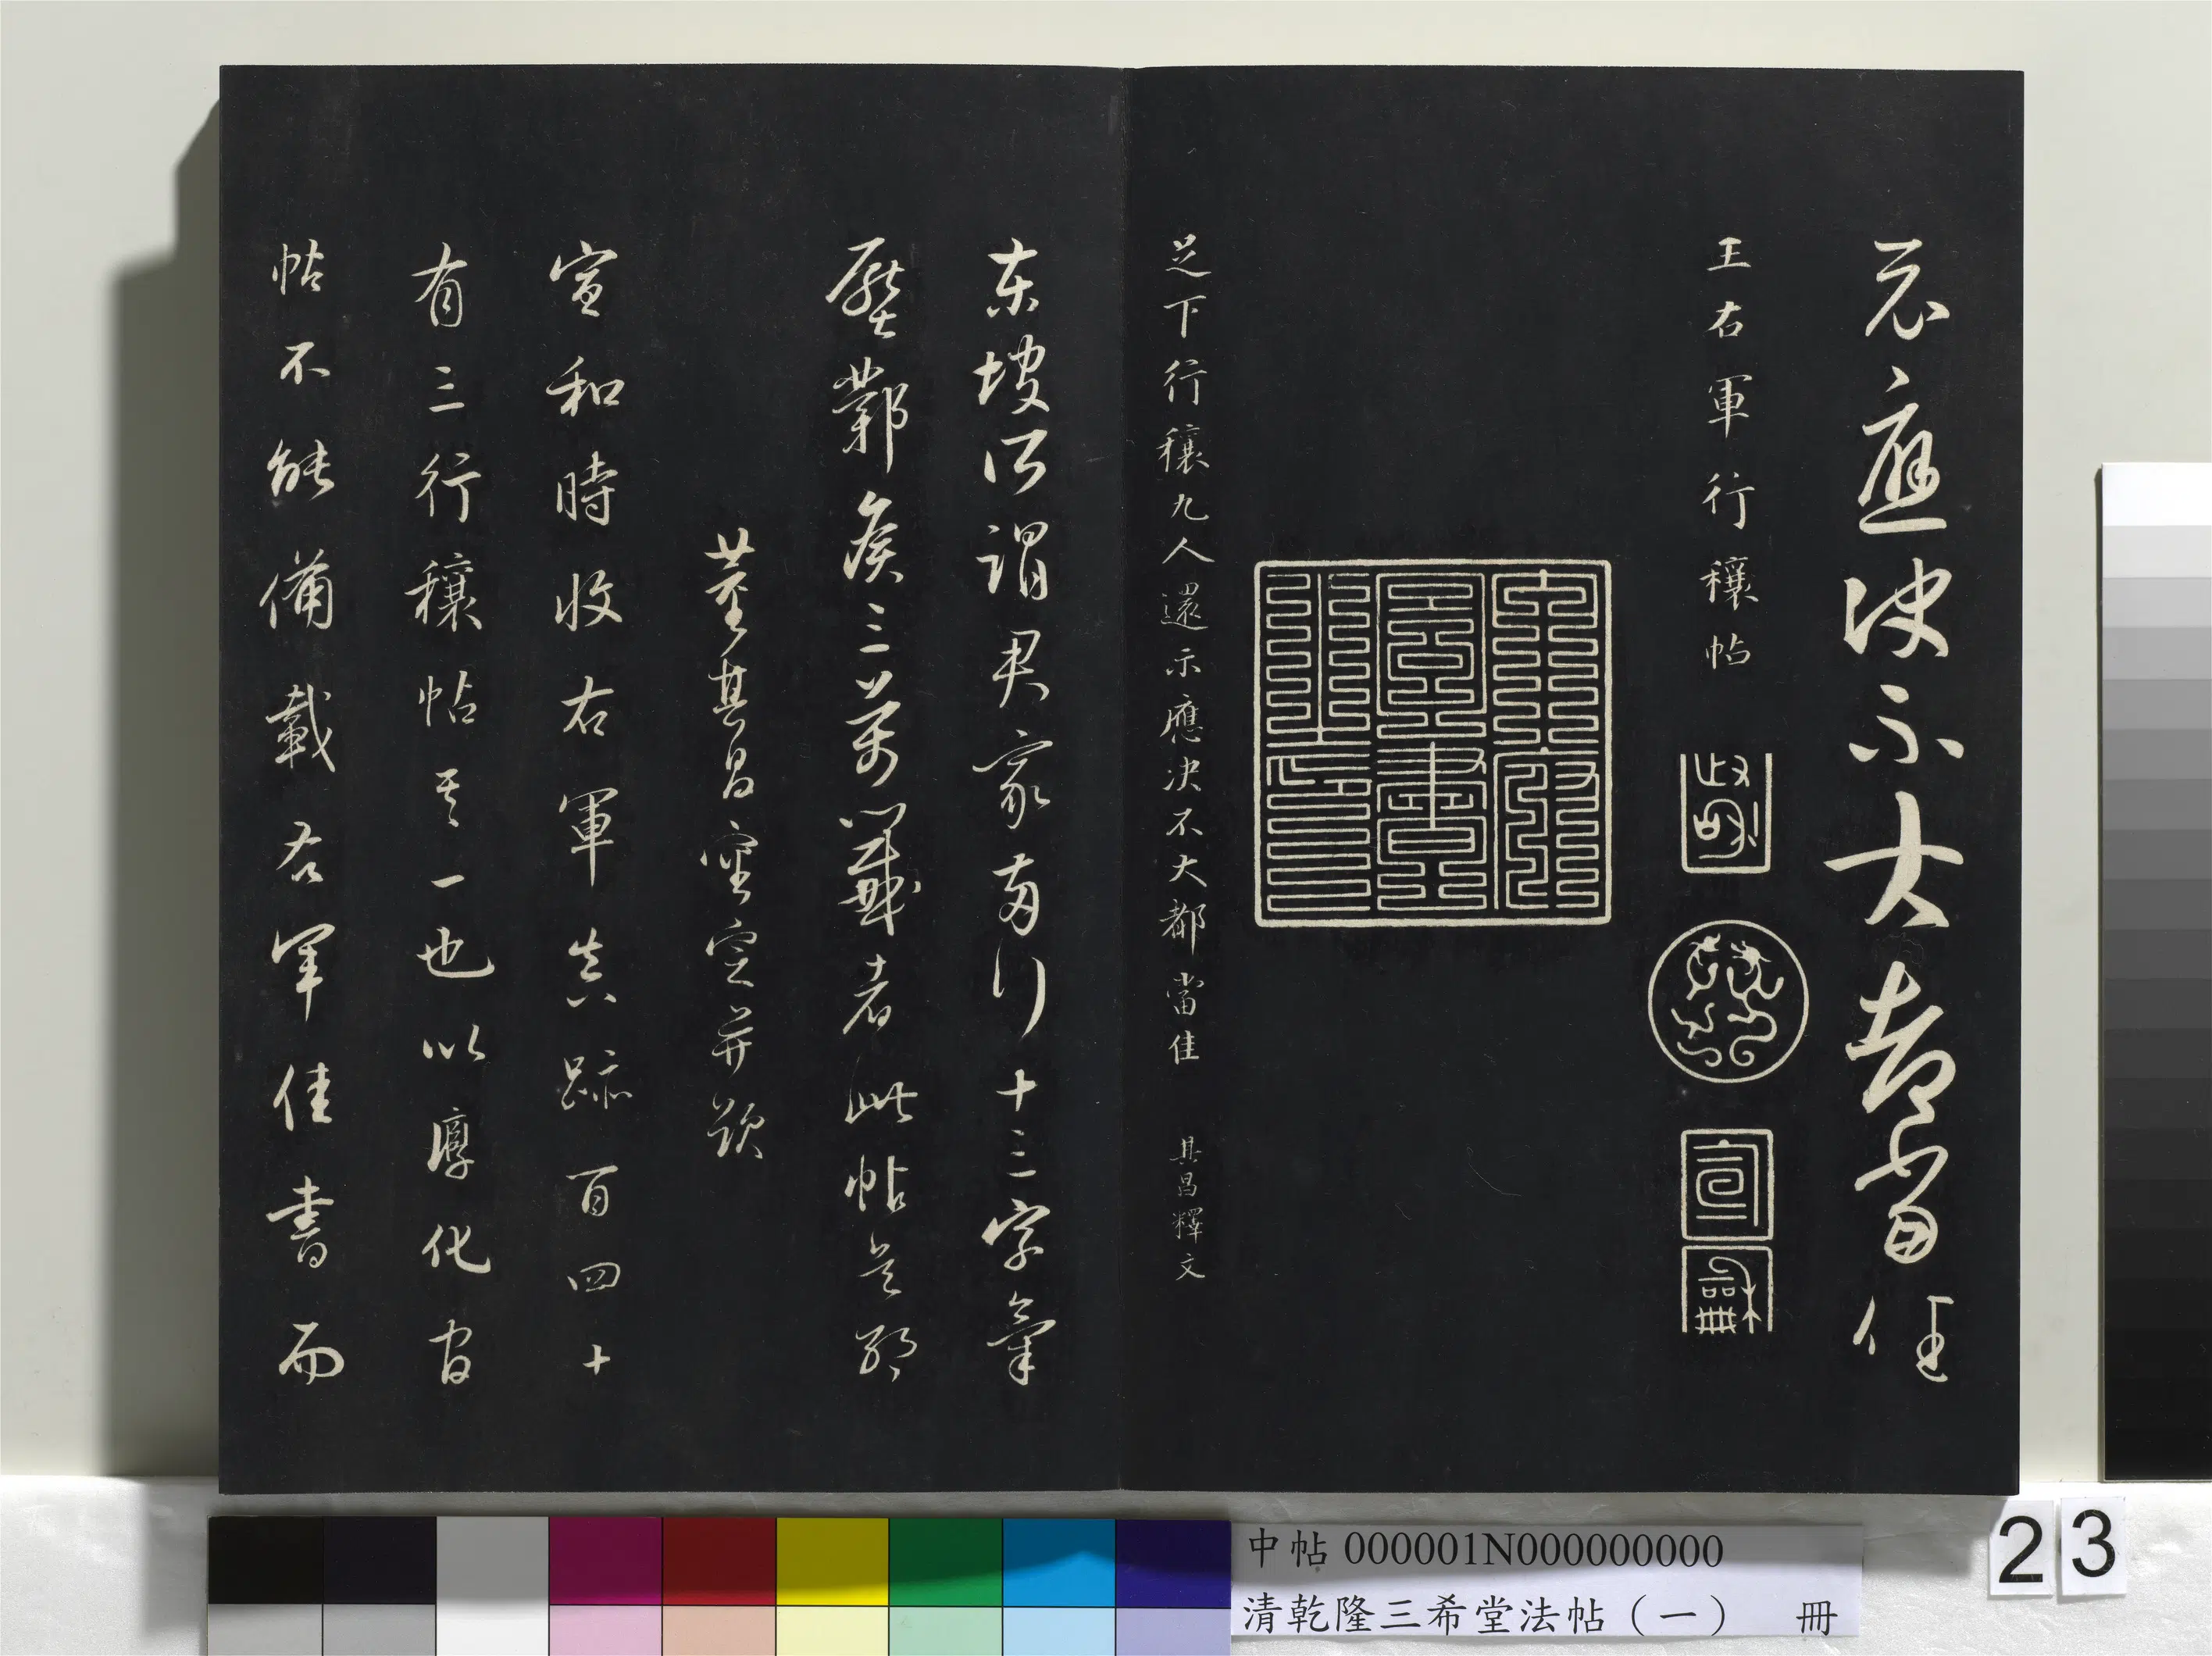 示應決不大都當佳
王右軍行穰帖
政和
宣和
足下行穰九人還示應决不大都當佳 其昌釋文
東坡所謂君家兩行十三字氣
壓鄴侯三萬籤者此帖是耶
董其昌審定并題
宣和時收右軍真跡百四十
有三行穰帖其一也以淳化官
帖不能備載右軍佳書而
中帖 000001N000000000
清乾隆三希堂法帖（一） 冊
23